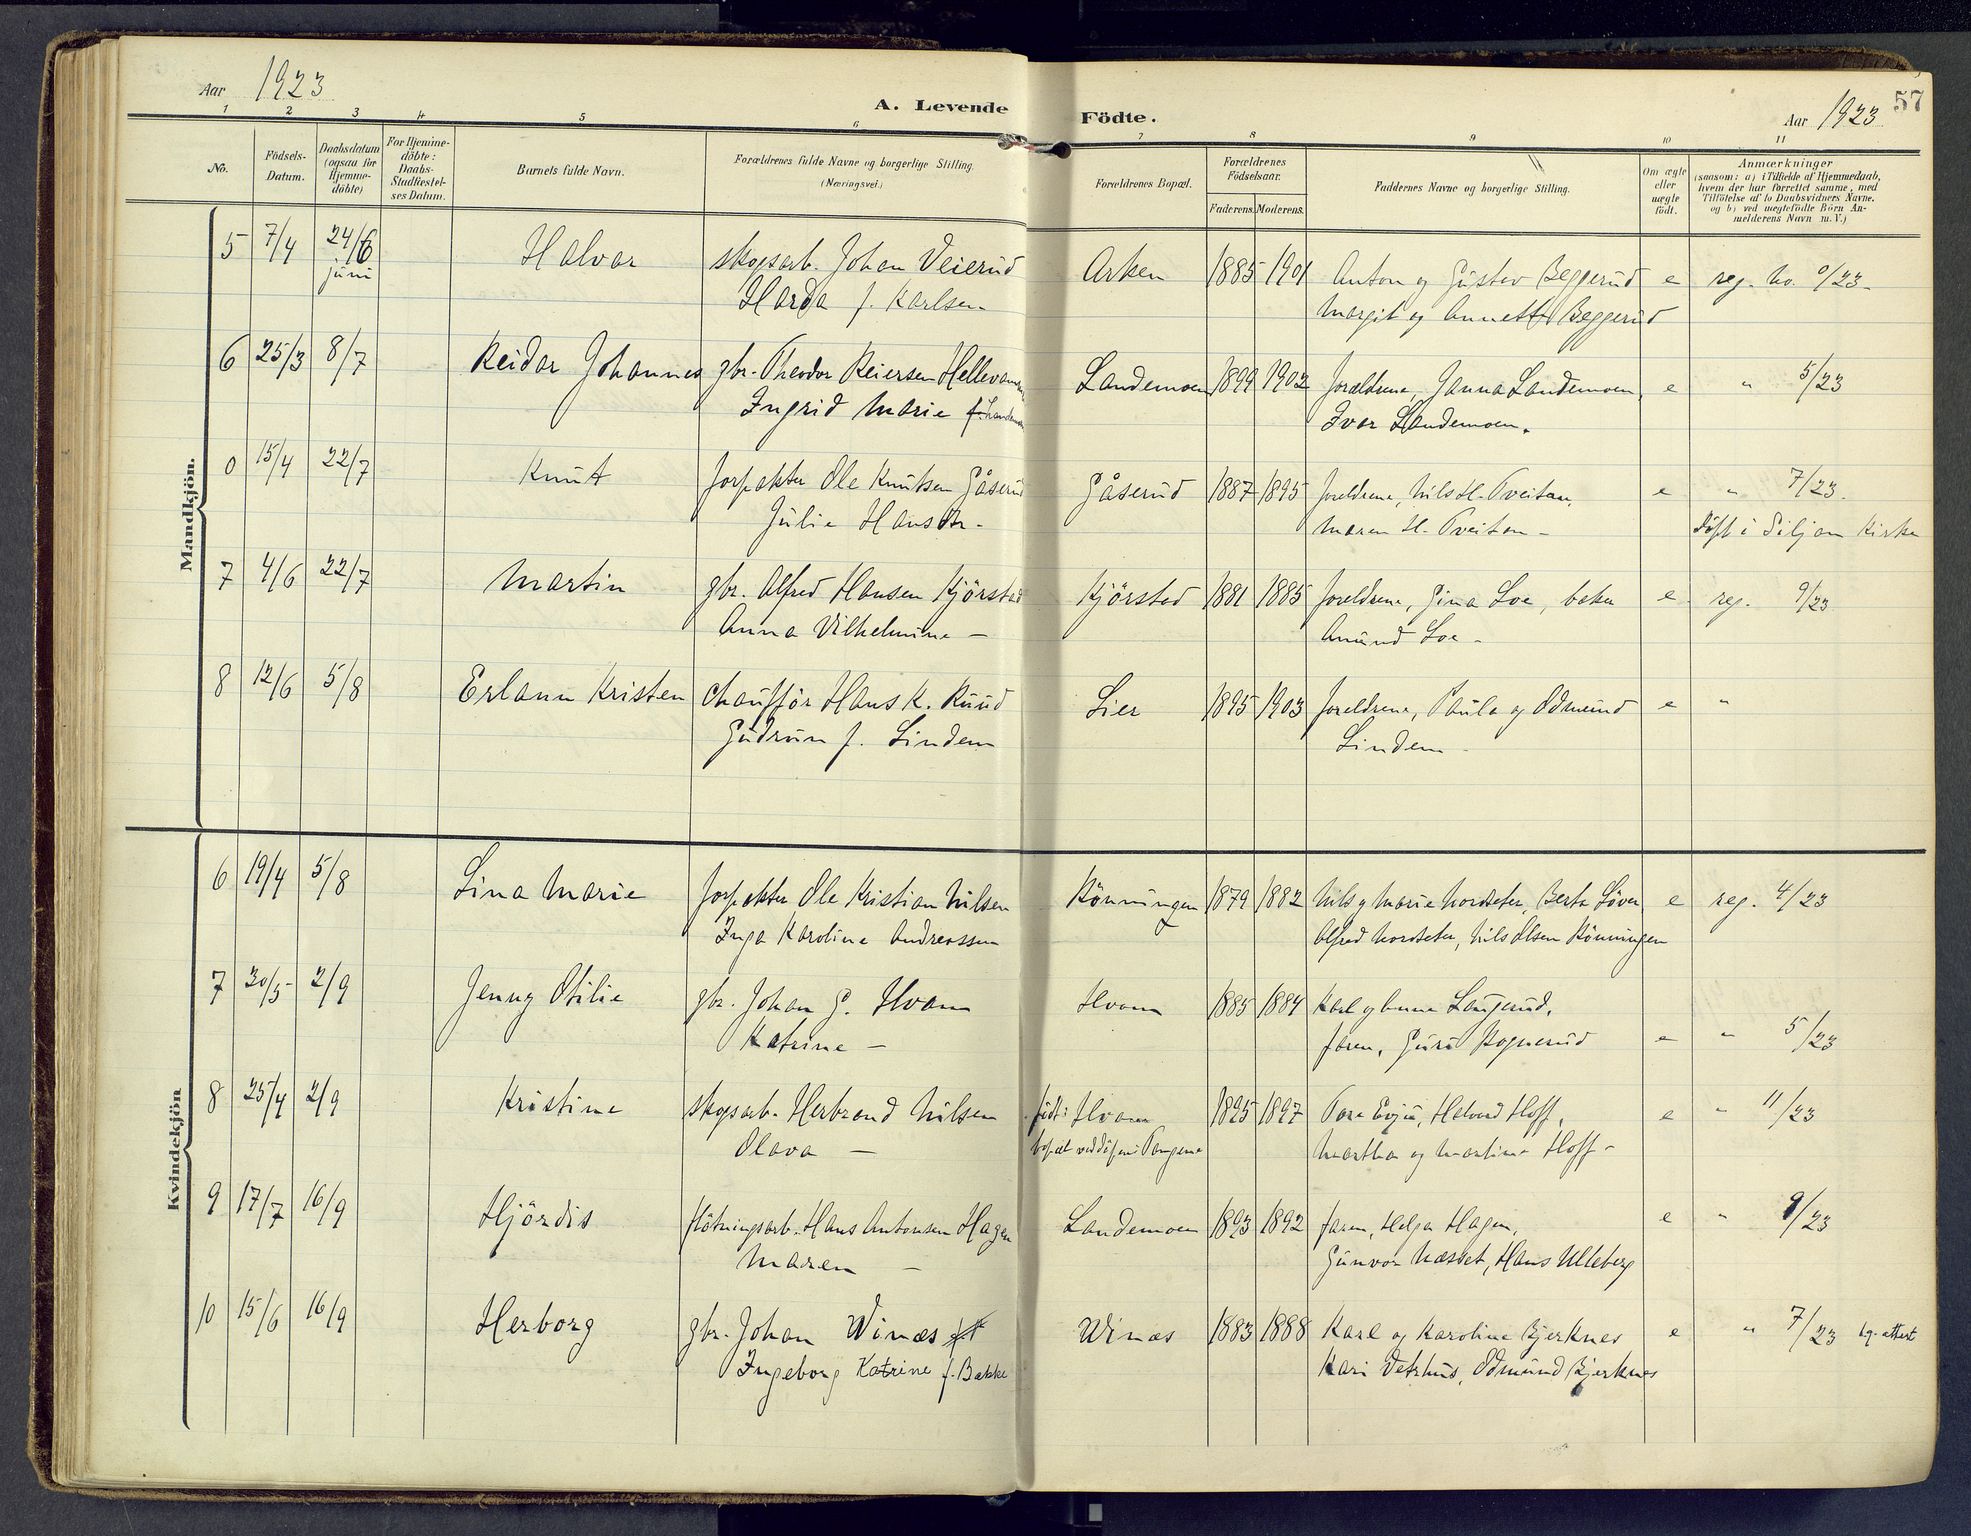 Aar 1923
A. Levende Födte.
Aar 1923
57
1 2 3 4 5 6 7 8 9 10 11
No.
Födsels-Datum.
Daabsdatum (ogsaa för Hjemme-döbte)
For Hjemme-döbte: Daabs-Stadfæstel-ses Datum.
Barnets fulde Navn.
Forældrenes fulde Navne og borgerlige Stilling. (Næringsvei.)
Forældrenes Bopæl.
Forældrenes Födselsaar.
Faderens. Moderens.
Faddernes Navne og borgerlige Stilling.
Om ægte eller uægte födt.
Anmærkninger
(saasom: a) i Tilfælde af Hjemmedaab, hvem der har forrettet samme, med Tilföielse af to Daabsvidners Navne, og b) ved uægtefödte Börn Anmelderens Navn m. V.)
Mandkjön.
5 7/4 24/6 Halvar skogsarb. Johan Veierud Arken 1885 1901 Anton og Gustav Beggerud e reg. no. 9/23.
juni Harda f. Karlsen Margit og Annette Beggerud
6 25/3 8/7 Reidar Johannes gbr. Theodor Reiersen Landemoen 1899 1902 Forældrene, Janna Landemoen, e " 5/23
Ingrid Marie f. Ivar Landemoen.
0 15/4 22/7 Knut forpakter Ole Knutsen Gåserud Gåserud 1887 1895 foreldrene, Nils H. Tveitan, e " 7/23.
Julie Hansdtr - Maren H. Tveitan - döpt i Siljan Kirke
7 4/6 22/7 Martin gbr. Alfred Hansen Kjörstad Kjörstad 1881 1885 foreldrene, Gina Loe, baker e reg. 9/23
Anna Vilhelmine - Amund Loe -
8 12/6 5/8 Erlann Kristen chaufför Hans K. Ruud Lier 1895 1903 foreldrene, Paula og Odmund e "
Gudrun f. Lindem Lindem -
Kvindekjön
6 19/4 5/8 Lina Marie forpakter Ole Kristian Nilsen Rönningen 1879 1882 Nils og Marie Nordseter, Berta Löver, e reg. 4/23
Inga Karoline Andreassen Alfred Nordseter, Nils Olsen Rönningen
7 30/5 2/9 Jenny Otilie gbr. Johan G. Hvam Hvam 1885 1884 Karl og Anna Laugerud,
Katrine - faren, Guri Rognerud e " 5/23
8 25/4 2/9 Kristine skogsarb. Herbrand Nilsen födt: Hvam 1895 1897 Tore Evju, Halvard Hoff, e " 11/23
Olava - bopæl ved döpen: Tangene Martha og Martine Hoff -
9 17/7 16/9 Hjördis flötningsarb. Hans Antonsen Hagen Landemoen 1893 1892 faren, Helga Hagen, e " 9/23
Maren - Gunvor Næsset, Hans Ulleberg
10 15/6 16/9 Herborg gbr. Johan Winæs Winæs 1883 1888 Karl og Karoline Bjerknes e " 7/23 bg. attest
Ingeborg Katrine f. Bakke Kari Vetrhus, Odmund Bjerknes